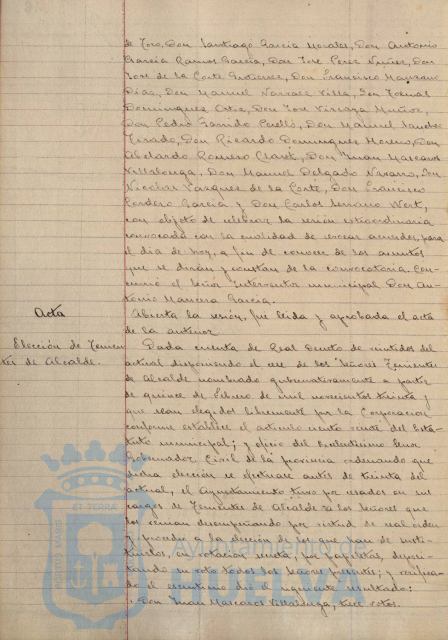 de Toro, Don Santiago García Morales, Don Antonio
García Ramos García, Don José Pérez Núñez, Don
José de la Corte Gutiérrez, Don Francisco Manzano
Díaz, Don Manuel Narraez Villa, Don Tomás
Domínguez Ortiz, Don José Vizcaya Muñoz,
Don Pedro Garrido Perelló, Don Manuel Sanchez
Tirado, Don Ricardo Domínguez Moreno, Don
Abelardo Romero Claret, Don Juan Mascarós
Villalonga, Don Manuel Delgado Navarro, Don
Nicolás Vázquez de la Corte, Don Francisco
Cordero García y Don Carlos Serrano Wert,
con objeto de celebrar la sesión extraordinaria
convocada con la cualidad de tomar acuerdos, para
el día de hoy, a fin de conocer de los asuntos
que se dirán y constan de la convocatoria. Con-
currió el Señor Interventor municipal Don An-
tonio Manzera García.
Acta
Abierta la sesión, fué leida y aprobada el acta
de la anterior
Elección de Tenien-
tes de Alcalde.
Dada cuenta de Real Decreto de veintidos del
actual disponiendo el cese de los Señores Tenientes
de Alcalde nombrados gubernativamente a partir
de quince de Febrero de mil novecientos treinta y
que sean elegidos libremente por la Corporación
conforme establece el artículo ciento veinte del Esta-
tuto municipal; y oficio del Excelentísimo Señor
Gobernador Civil de la provincia ordenando que
dicha elección se efectuase antes de treinta del
actual, el Ayuntamiento tuvo por cesados en sus
cargos de Tenientes de Alcalde a los Señores que
los venían desempeñando por virtud de real orden
y procede a la elección de los que han de susti-
tuirlos, en votación secreta, por papeletas, deposi-
tando su voto todos los Señores presentes; y verifica-
do el escrutinio dió el siguiente resultado:
Don Juan Mascarós Villalonga, trece votos.
PORTUS MARIS
ET TERRÆ
Ayuntamiento de
HUELVA